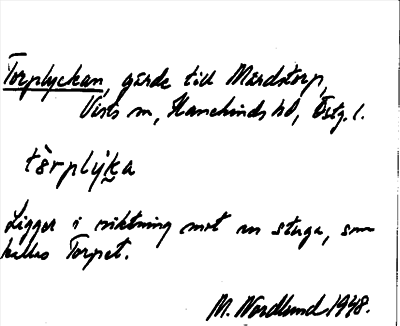 Torplyckan, gärde till Mårdstorp,
Vists sn, Hanekinds hd, Östg. l.
tòrplyka
Ligger i riktning mot en stuga, som
kallas Torpet.
M. Nordlund 1948.